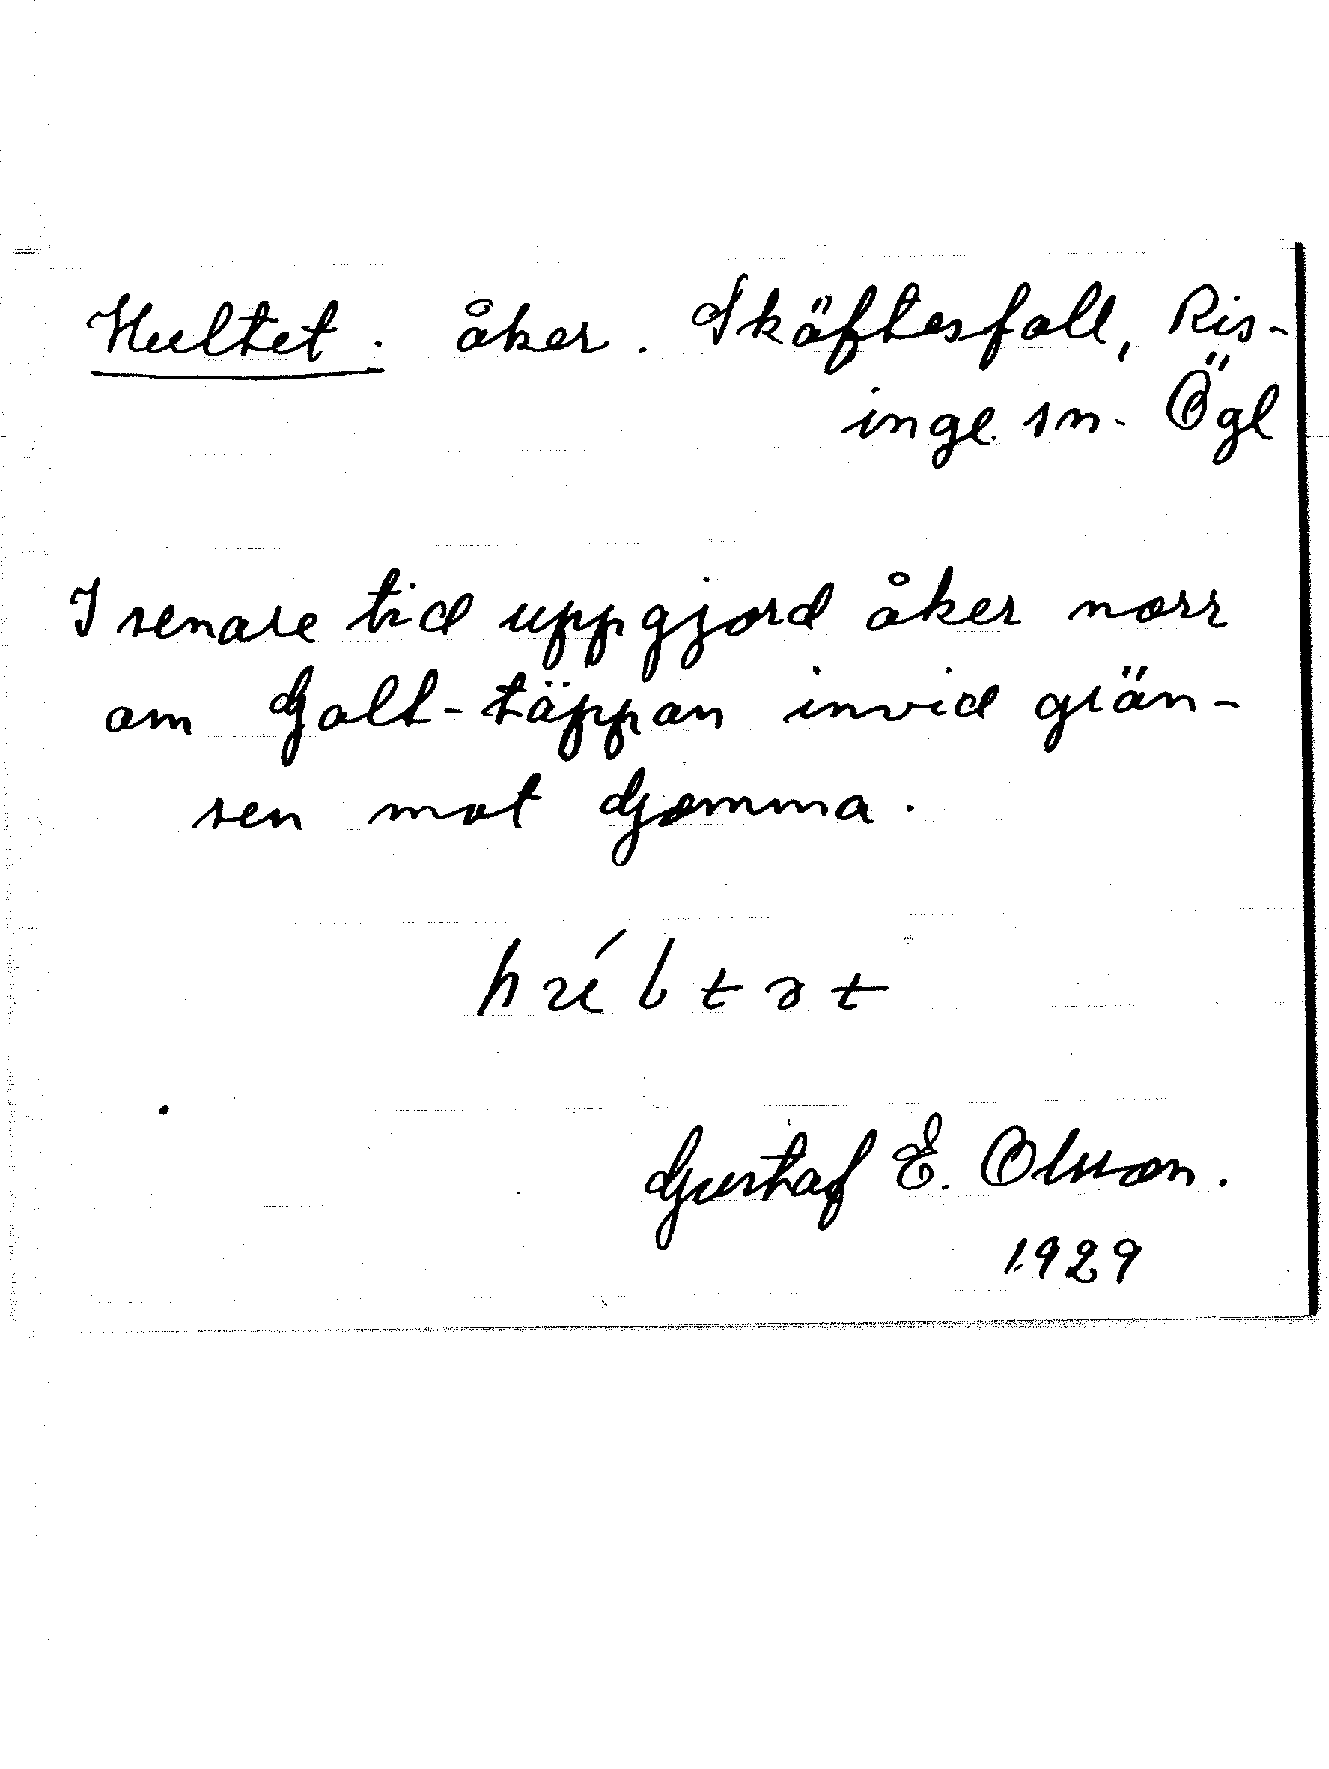 Hultet. åker. Skäftesfall, Ris-
inge sn. Ögl
I senare tid uppgjord åker norr
om Galt-täppan invid grän-
sen mot Gömma.
Gustaf E. Olsson.
1929